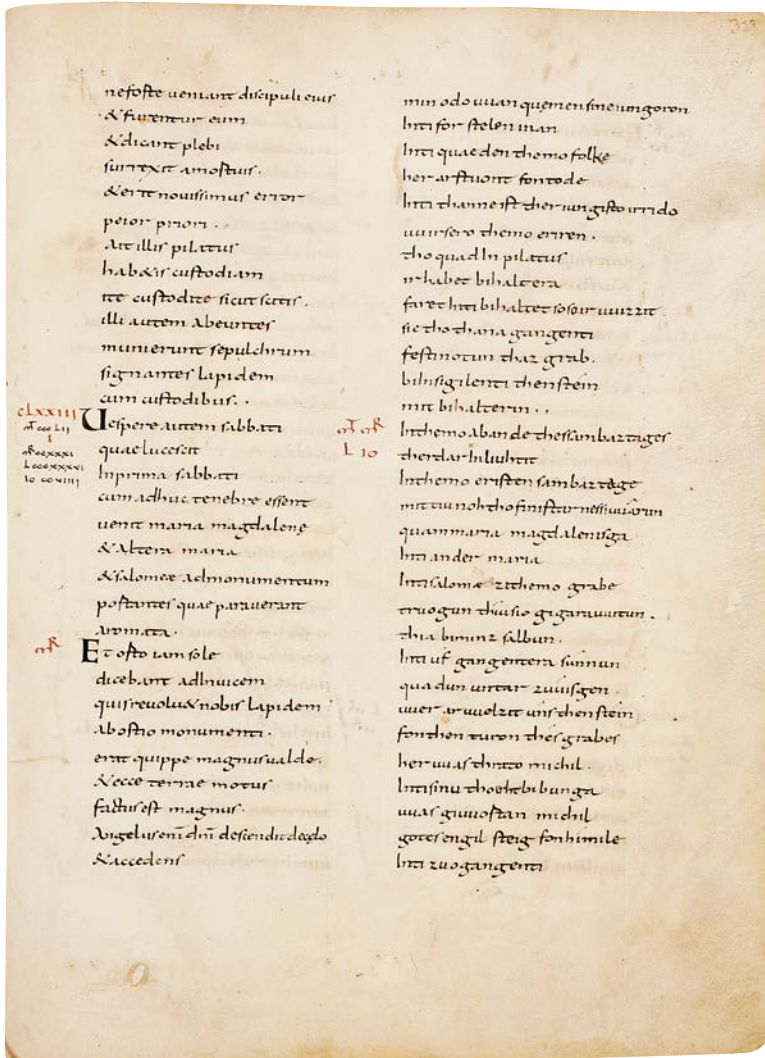 323
ne forte veniant discipuli eius
& furentur eum
& dicant plebi
surrexit a mortuis.
& erit novissimus error
peior priori.
Ait illis pilatus
hab&is custodiam
ite custodite sicut scitis.
illi autem abeuntes
munierunt sepulchrum
signantes lapidem
cum custodibus.
CLXXIIII
mt ccc LII
I
mr ccxxxi
L cccxxxvi
Io ccviiii
Uespere autem sabbati
quae lucescit
In prima sabbati
cum adhuc tenebre essent
venit maria magdalenę
& Altera maria
& salomæ ad monumentum
portantes quae paraverant
aromata.
mr
Et orto iam sole
dicebant adInvicem
quis revolv& nobis lapidem
ab ostio monumenti.
erat quippe magnus valde.
& ecce terrae motus
factus est magnus.
Angelus enī dnī descendit de cęlo
& accedens
min odo uuan quęmen sine iungoron
Inti for stelen inan
Inti quaeden themo folke
her arstuont fon tode
Inti thanne ist ther iungisto irrido
uuirsero themo eriren.
tho quad In pilatus
ir habet bihaltera
faret Inti bihaltet soso ir uuizzit.
sie tho thana gangenti
festinotun thaz grab.
bilnsigilenti then stein
mit bihalterin.
mt mr
L Io
In themo abande thes sambaztages
ther dar In liuhtit
In themo eristen sambaztage
mit tiu noh tho finistarnessi uuarun
quam maria magdalenisga
Inti ander maria
Inti salomæ zi themo grabe
truogun thiu sio gigarauuitun.
thia biminz salbun.
Inti uf gangentera sunnun
quadun untar zuuisgen.
uuer aruuelzit uns then stein
fon then turon thes grabes
her uuas thrato michil.
Inti sinu tho erthbibunga
uuas giuuortan michil
gotes engil steig fon himile
Inti zuo gangenti